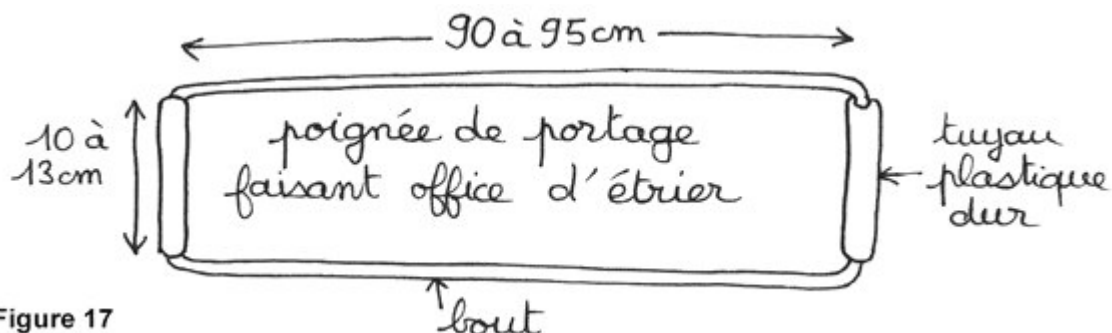 90 à 95cm
10 à
13cm
poignée de portage
faisant office d'étrier
tuyau
plastique
dur
bout
Figure 17